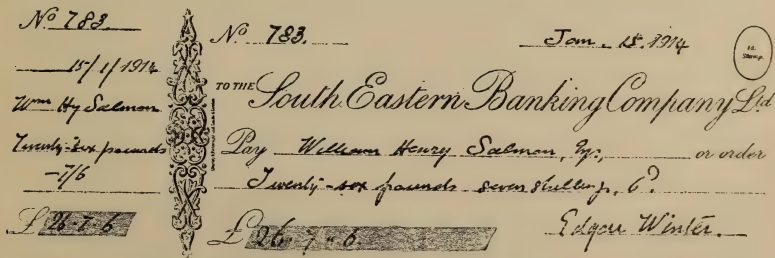 No 783
15/1/1914
Wm Hy Salmon
Twenty-six pounds
-7/6
£ 26-7-6
No 783.
Jan. 15. 1914
1d. Stamp.
TO THE South Eastern Banking Company Ltd
Pay William Henry Salmon, Esq., or order
Twenty-six pounds seven shillings, 6d.
£ 26-7-6
Edgar Winter.